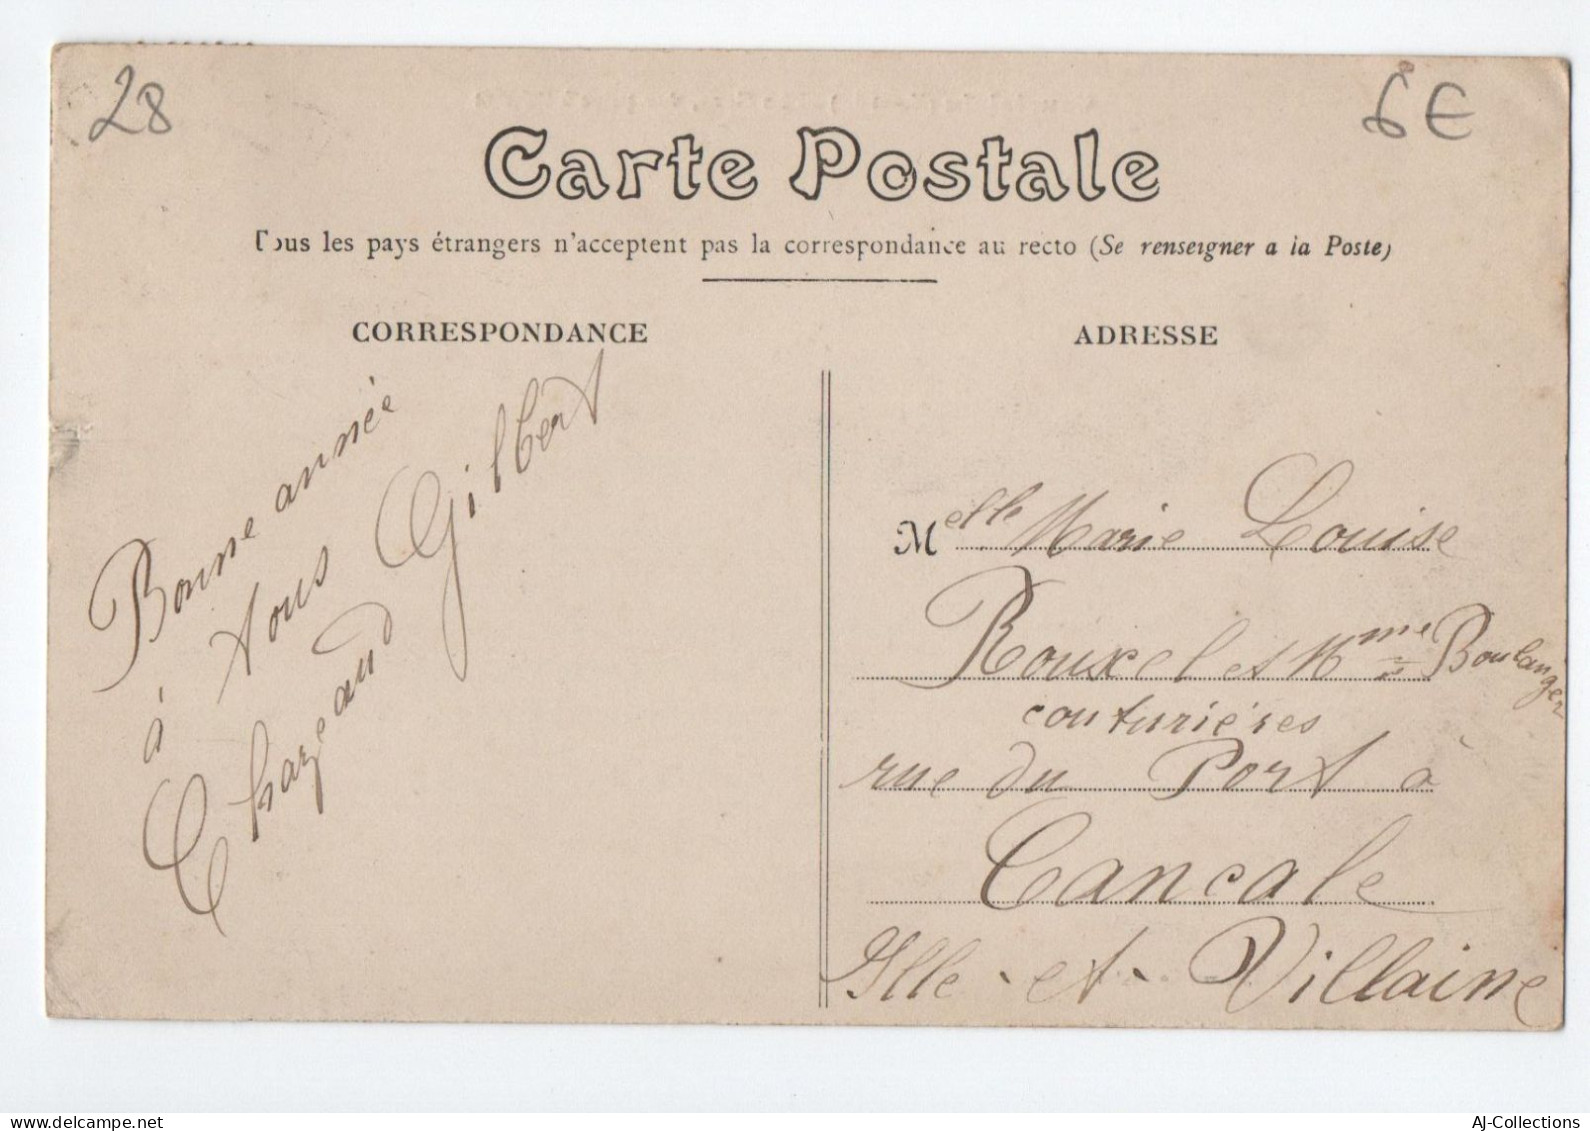 28
6€
Carte Postale
Tous les pays étrangers n'acceptent pas la correspondance au recto (Se renseigner a la Poste)
CORRESPONDANCE
ADRESSE
Bonne année
à tous
Chazeaud Gilbert
Melle Marie Louise
Rouxel et Mme Boulanger
couturières
rue du Port à
Cancale
Ille-et-Villaine
delcampe.net
AJ-Collections